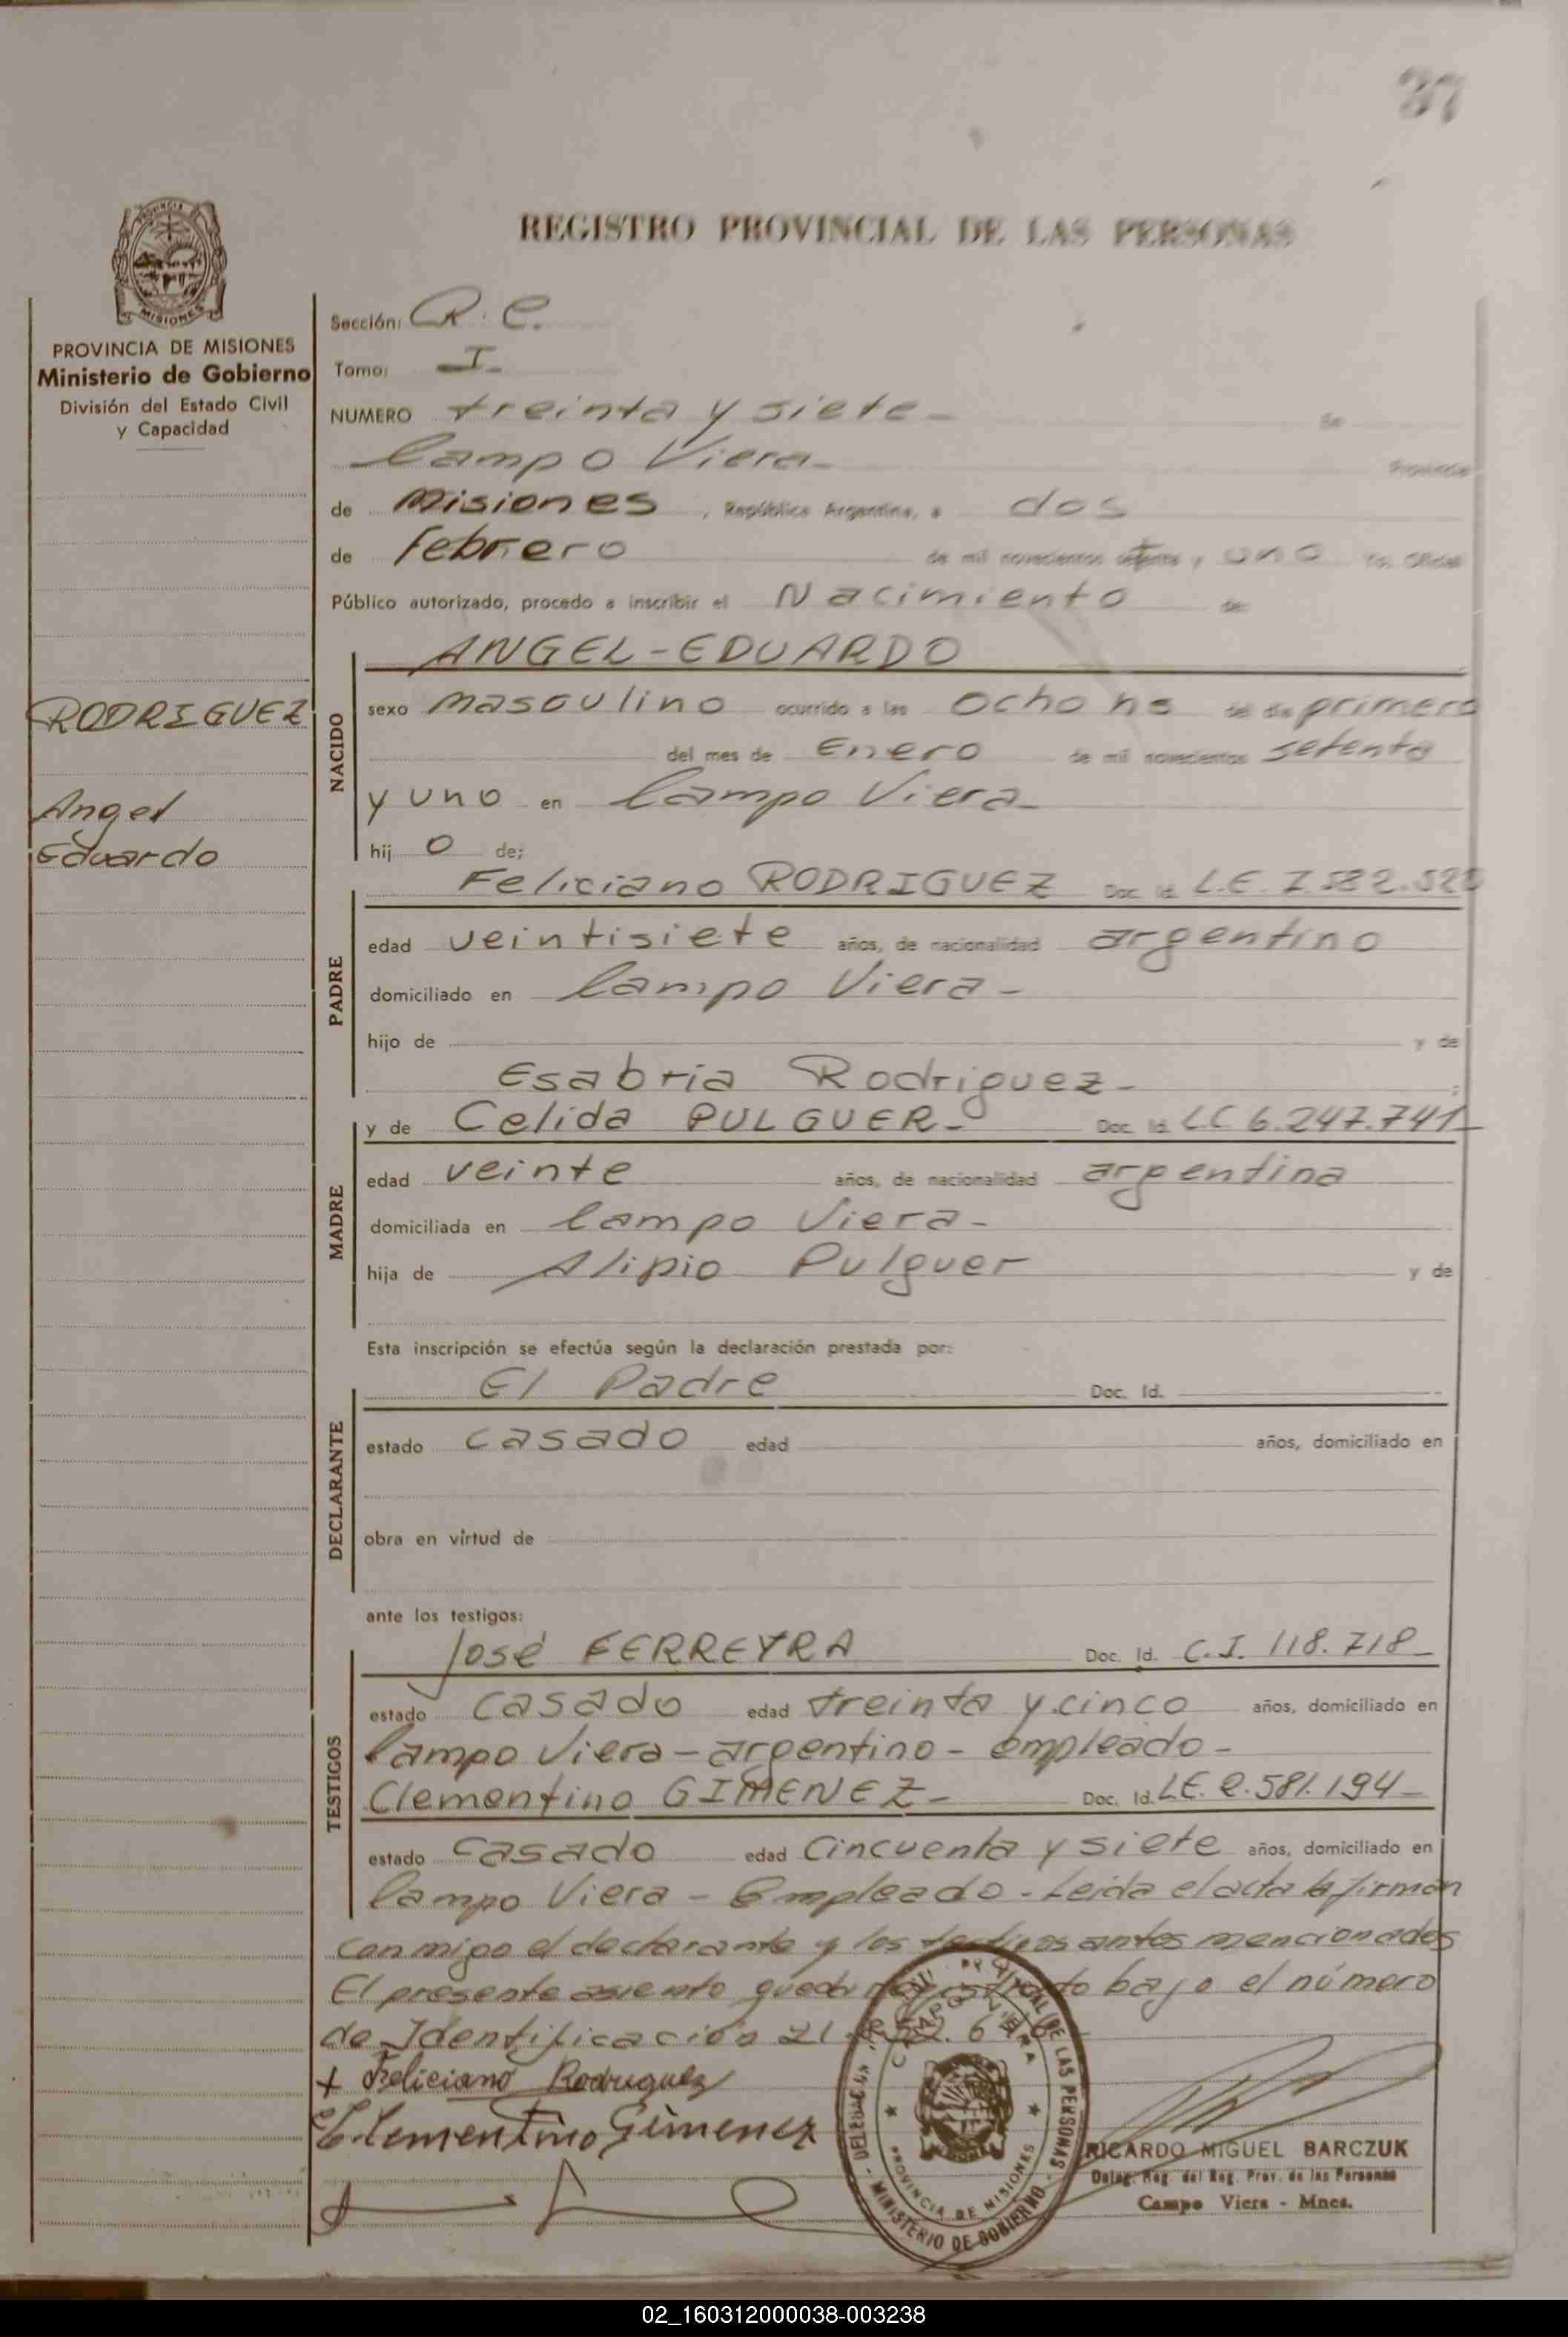 37
REGISTRO PROVINCIAL DE LAS PERSONAS
PROVINCIA DE MISIONES
Ministerio de Gobierno
División del Estado Civil
y Capacidad
Sección: R. C.
Tomo: I
NUMERO treinta y siete - En
Campo Viera - Provincia
de Misiones, República Argentina, a dos
de Febrero de mil novecientos setenta y uno Yo, Oficial
Público autorizado, procedo a inscribir el Nacimiento de:
RODRIGUEZ
Angel
Eduardo
NACIDO
ANGEL-EDUARDO
sexo masculino ocurrido a las ocho hs del dia primero
del mes de Enero de mil novecientos setenta
y uno en Campo Viera -
hij o de:
PADRE
Feliciano RODRIGUEZ Doc. Id. L.E. 7.582.
edad veintisiete años, de nacionalidad argentino
domiciliado en Campo Viera -
hijo de y de
Esabria Rodriguez -
MADRE
y de Celida PULGUER - Doc. Id. L.C 6.247.741 -
edad veinte años, de nacionalidad argentina
domiciliada en Campo Viera -
hija de Alipio Pulguer y de
Esta inscripción se efectúa según la declaración prestada por:
DECLARANTE
El Padre Doc. Id.
estado casado edad años, domiciliado en
obra en virtud de
ante los testigos:
TESTIGOS
José FERREYRA Doc. Id. C.I. 118.718 -
estado casado edad treinta y cinco años, domiciliado en
Campo Viera - argentino - empleado -
Clementino GIMENEZ - Doc. Id. L.E. 2.581.194 -
estado casado edad Cincuenta y siete años, domiciliado en
Campo Viera - Empleado - Leida el acta la firman
conmigo el declarante y los testigos antes mencionados
El presente asiento queda registrado bajo el número
de Identificación 21.
+ Feliciano Rodriguez
Clementino Gimenez
DELEGACION PROVINCIAL DE LAS PERSONAS
CAMPO VIERA
PROVINCIA DE MISIONES
MINISTERIO DE GOBIERNO
RICARDO MIGUEL BARCZUK
Deleg. Reg. del Reg. Prov. de las Personas
Campo Viera - Mnes.
02_160312000038-003238